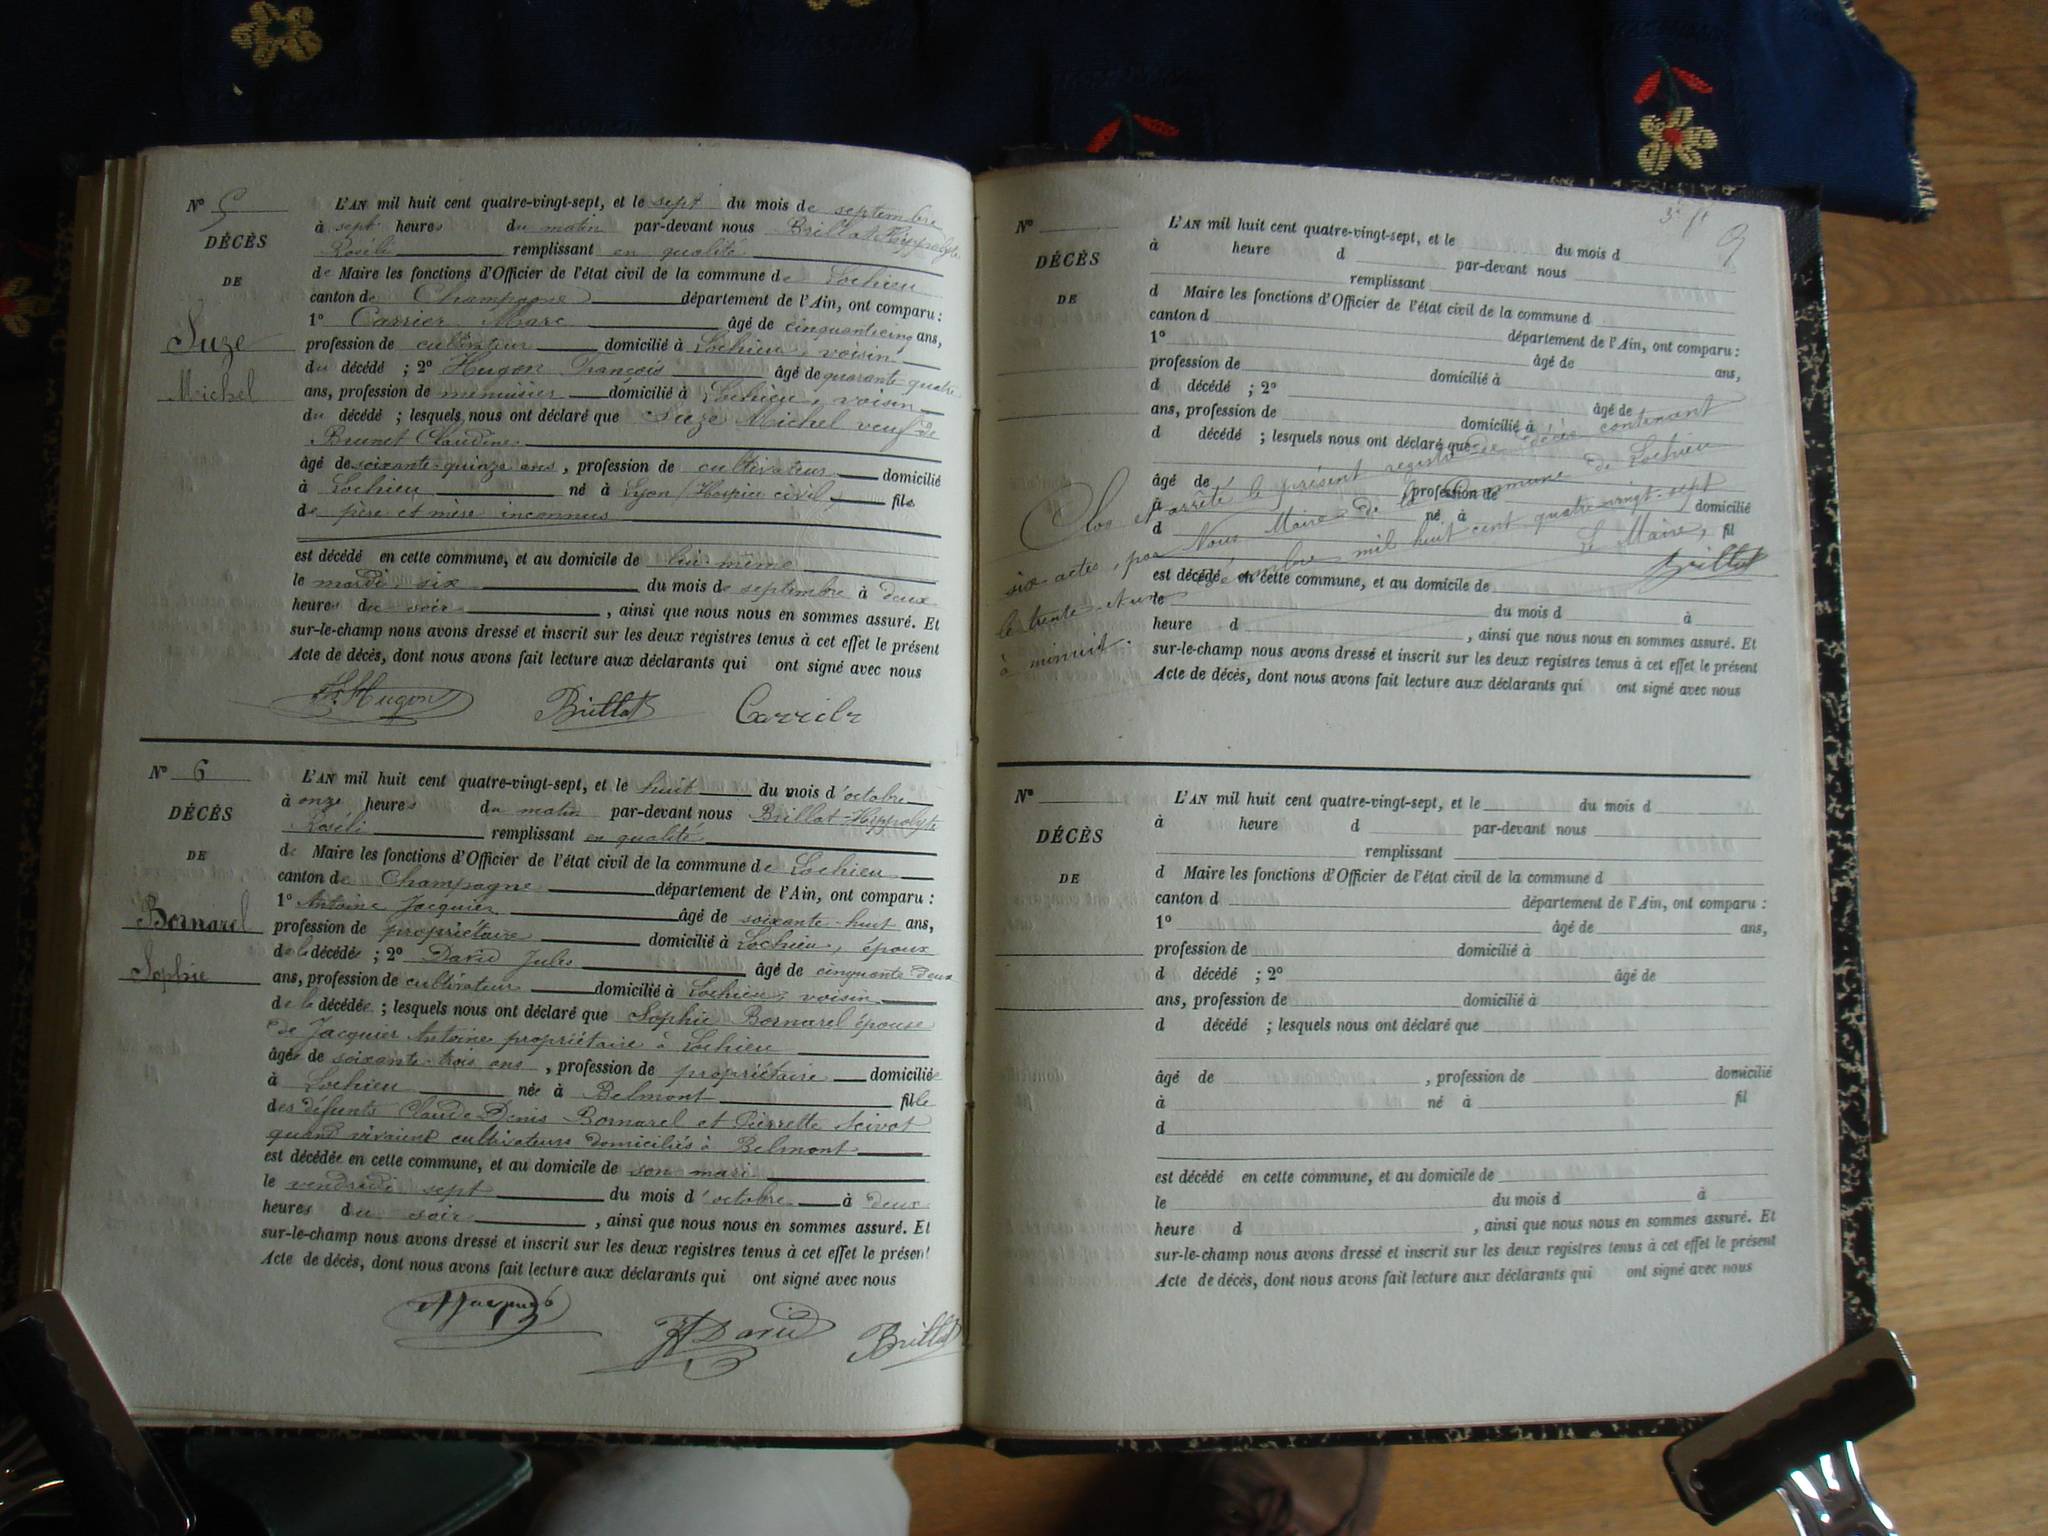 N° 5
DÉCÈS
DE
Suze
Michel
L'AN mil huit cent quatre-vingt-sept, et le sept du mois de septembre
à sept heures du matin par-devant nous Brillat Hippolyte
Roséli remplissant en qualité
de Maire les fonctions d'Officier de l'état civil de la commune de Lochieu
canton de Champagne département de l'Ain, ont comparu :
1° Carrier Marc âgé de cinquante cinq ans,
profession de cultivateur domicilié à Lochieu, voisin
du décédé ; 2° Hugon François âgé de quarante quatre
ans, profession de menuisier domicilié à Lochieu, voisin
du décédé ; lesquels nous ont déclaré que Suze Michel veuf de
Brunet Claudine
âgé de soixante-quinze ans, profession de cultivateur domicilié
à Lochieu né à Lyon (Hospice civil) fils
de père et mère inconnus
est décédé en cette commune, et au domicile de lui-même
le mardi six du mois de septembre à deux
heures du soir, ainsi que nous nous en sommes assuré. Et
sur-le-champ nous avons dressé et inscrit sur les deux registres tenus à cet effet le présent
Acte de décès, dont nous avons fait lecture aux déclarants qui ont signé avec nous
Hugon Brillat Carrier
N° 6
DÉCÈS
DE
Bornarel
Sophie
L'AN mil huit cent quatre-vingt-sept, et le huit du mois d'octobre
à onze heures du matin par-devant nous Brillat-Hippolyte
Roséli remplissant en qualité
de Maire les fonctions d'Officier de l'état civil de la commune de Lochieu
canton de Champagne département de l'Ain, ont comparu :
1° Antoine Jacquier âgé de soixante-huit ans,
profession de propriétaire domicilié à Lochieu, époux
de la décédée ; 2° David Jules âgé de cinquante deux
ans, profession de cultivateur domicilié à Lochieu, voisin
de la décédée ; lesquels nous ont déclaré que Sophie Bornarel épouse
de Jacquier Antoine propriétaire à Lochieu
âgée de soixante-trois ans, profession de propriétaire domiciliée
à Lochieu née à Belmont fille
des défunts Claude Denis Bornarel et Pierrette
quand vivaient cultivateurs domiciliés à Belmont
est décédée en cette commune, et au domicile de son mari
le vendredi sept du mois d'octobre à deux
heures du soir, ainsi que nous nous en sommes assuré. Et
sur-le-champ nous avons dressé et inscrit sur les deux registres tenus à cet effet le présent
Acte de décès, dont nous avons fait lecture aux déclarants qui ont signé avec nous
David Brillat
N°
DÉCÈS
DE
L'AN mil huit cent quatre-vingt-sept, et le du mois d
à heure d par-devant nous
remplissant
d Maire les fonctions d'Officier de l'état civil de la commune d
canton d
1° département de l'Ain, ont comparu :
profession de âgé de ans,
d décédé ; 2° domicilié à
ans, profession de âgé de
d décédé ; lesquels nous ont déclaré que domicilié à
âgé de , profession de
à né à domicilié
d fil
Clos et arrêté le présent registre de décès contenant
six actes, par Nous Maire de la Commune de Lochieu
le trente et un décembre mil huit cent quatre-vingt-sept
à minuit.
Le Maire,
Brillat
est décédé en cette commune, et au domicile de
le du mois d à
heure d , ainsi que nous nous en sommes assuré. Et
sur-le-champ nous avons dressé et inscrit sur les deux registres tenus à cet effet le présent
Acte de décès, dont nous avons fait lecture aux déclarants qui ont signé avec nous
N°
DÉCÈS
DE
L'AN mil huit cent quatre-vingt-sept, et le du mois d
à heure d par-devant nous
remplissant
d Maire les fonctions d'Officier de l'état civil de la commune d
canton d département de l'Ain, ont comparu :
1° âgé de ans,
profession de domicilié à
d décédé ; 2° âgé de
ans, profession de domicilié à
d décédé ; lesquels nous ont déclaré que
âgé de , profession de domicilié
à né à fil
d
est décédé en cette commune, et au domicile de
le du mois d à
heure d , ainsi que nous nous en sommes assuré. Et
sur-le-champ nous avons dressé et inscrit sur les deux registres tenus à cet effet le présent
Acte de décès, dont nous avons fait lecture aux déclarants qui ont signé avec nous